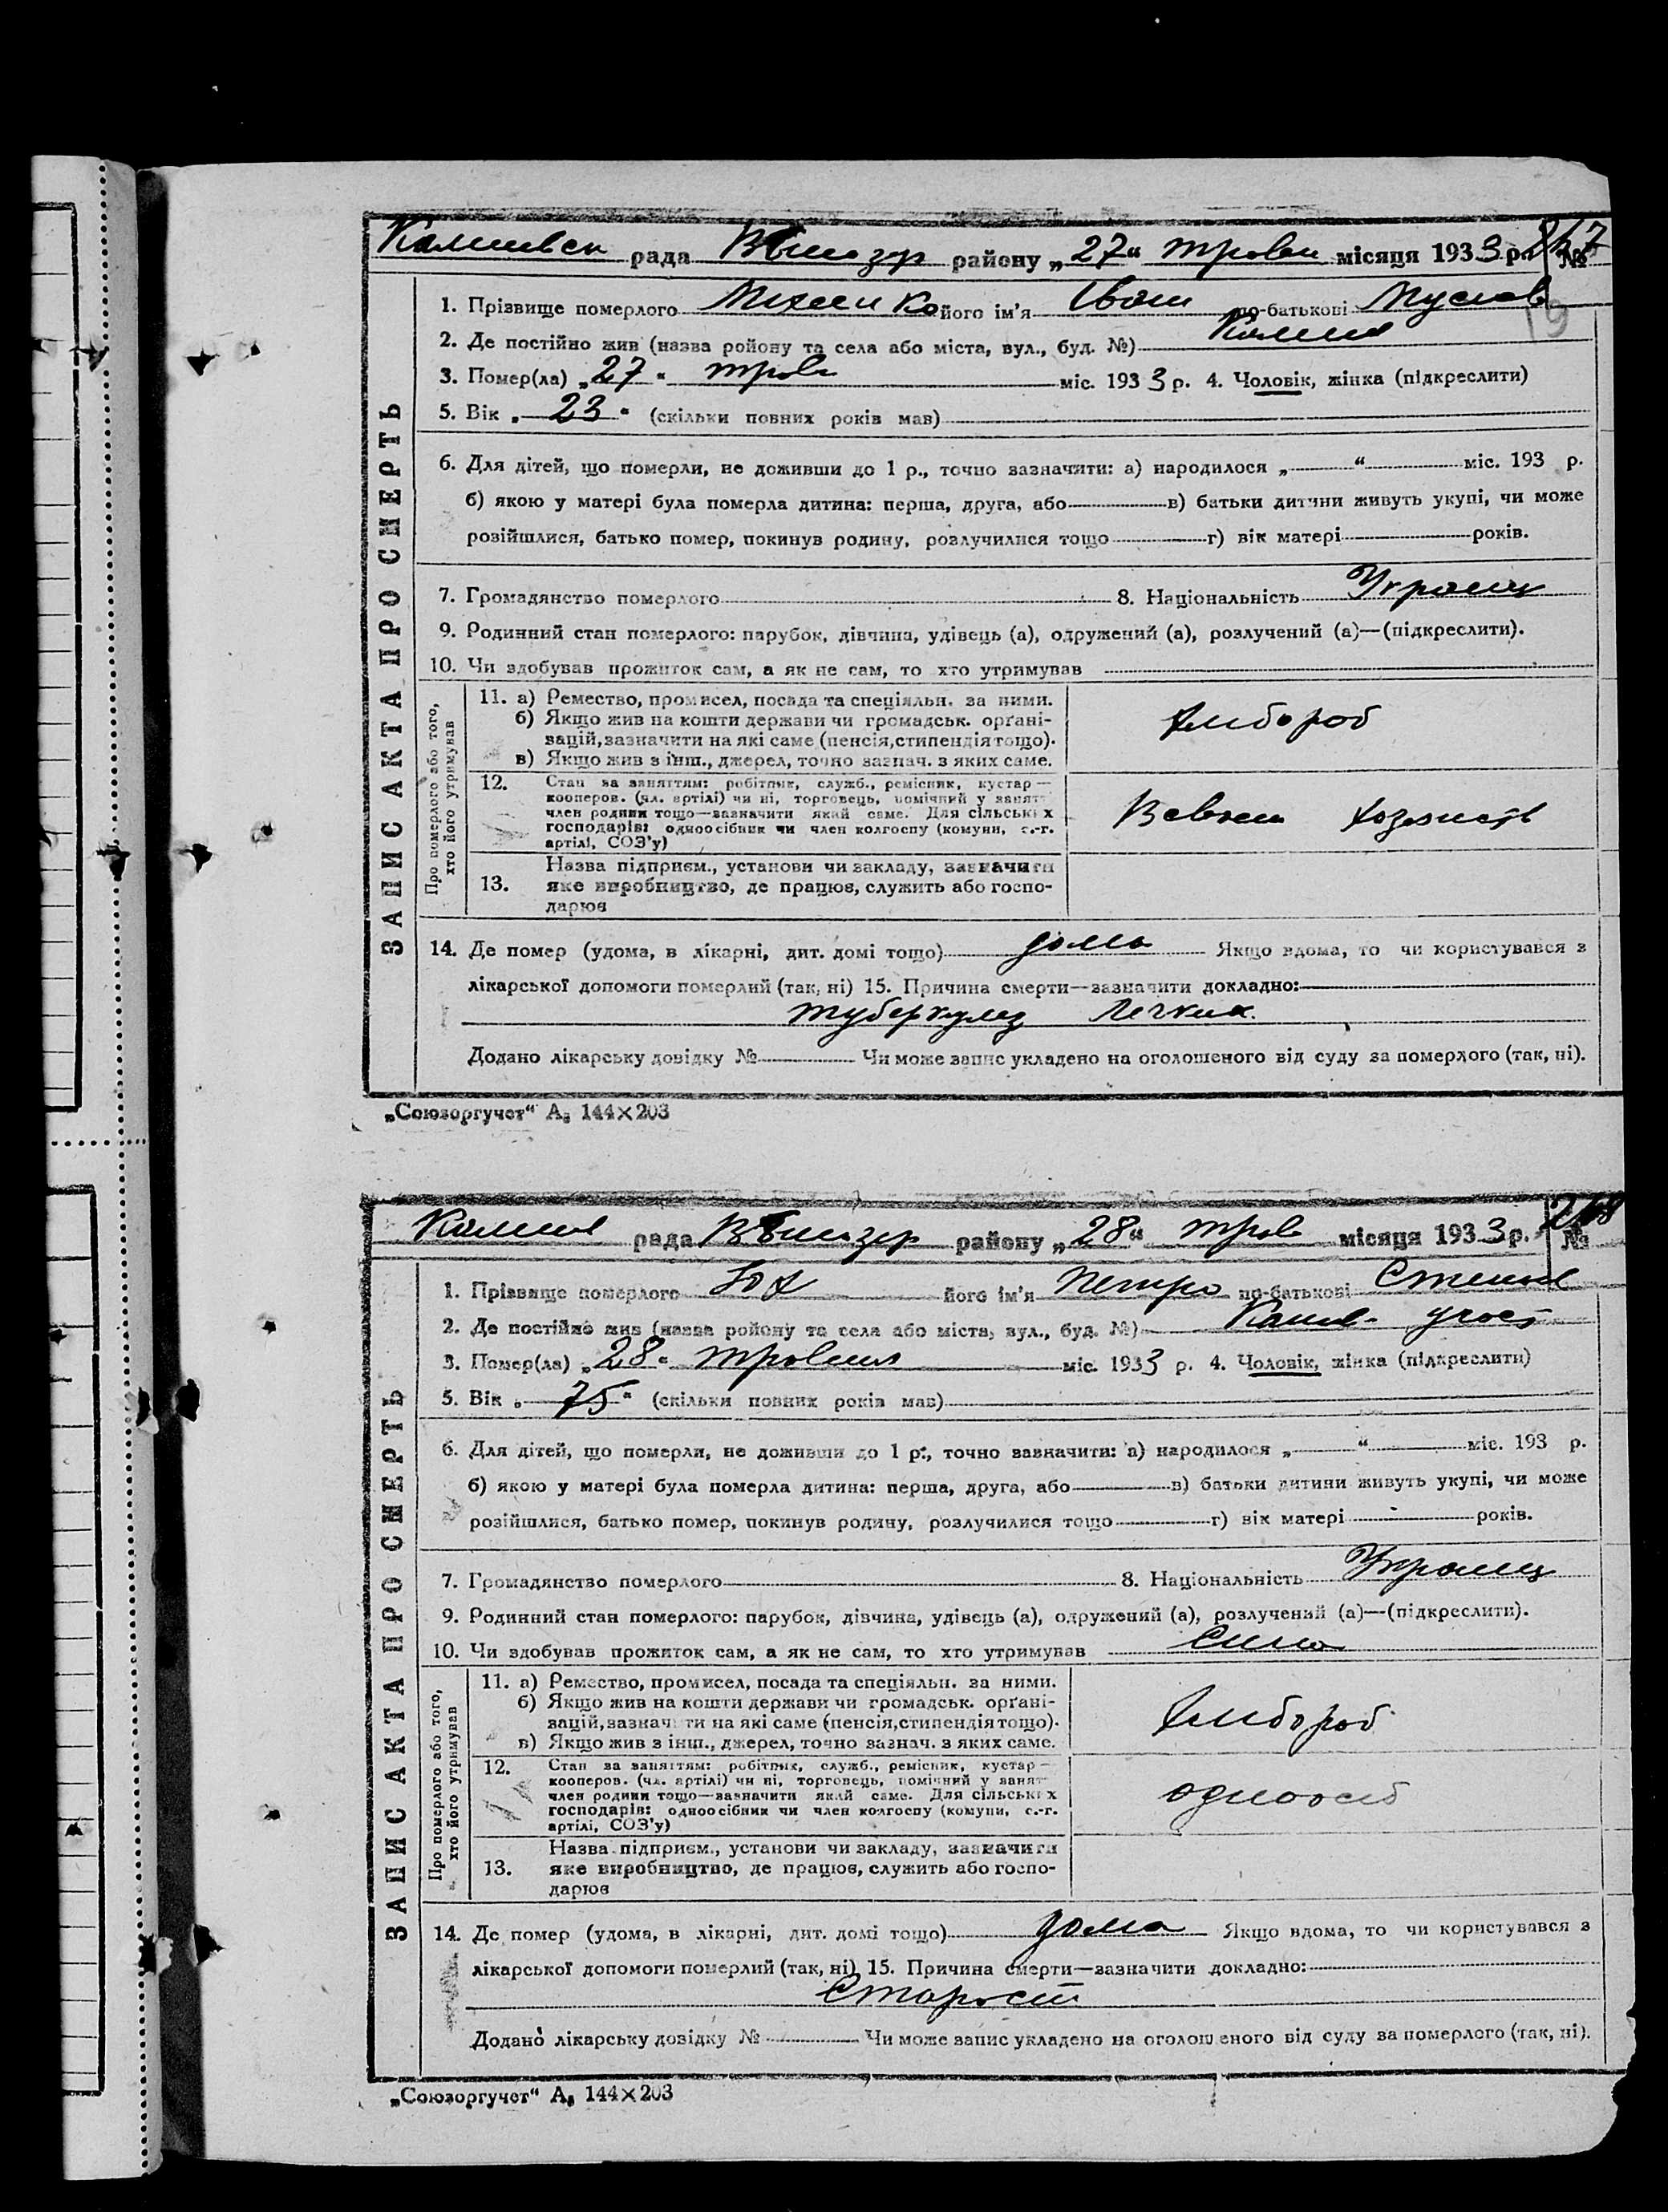 рада району „27“ місяця 1933 р. №
1. Прізвище померлого його ім'я Іван по-батькові
2. Де постійно жив (назва ройону та села або міста, вул., буд. №)
3. Помер(ла) „27“ трав міс. 1933 р. 4. Чоловік, жінка (підкреслити)
5. Вік „23“ (скільки повних років мав)
6. Для дітей, що померли, не доживши до 1 р., точно зазначити: а) народилося „ “ міс. 193 р.
б) якою у матері була померла дитина: перша, друга, або в) батьки дитини живуть укупі, чи може
розійшлися, батько помер, покинув родину, розлучилися тощо г) вік матері років.
7. Громадянство померлого 8. Національність Украинц
9. Родинний стан померлого: парубок, дівчина, удівець (а), одружений (а), розлучений (а)—(підкреслити).
10. Чи здобував прожиток сам, а як не сам, то хто утримував
ЗАПИС АКТА ПРО СМЕРТЬ
Про померлого або того, хто його утримував
11. а) Ремество, промисел, посада та спеціяльн. за ними.
б) Якщо жив на кошти держави чи громадськ. орґані-
зацій, зазначити на які саме (пенсія, стипендія тощо).
в) Якщо жив з інш., джерел, точно зазнач. з яких саме.
хлибороб
12. Стан за заняттям: робітник, служб., ремісник, кустар—
кооперов. (чл. артілі) чи ні, торговець, помічний у занят
член родини тощо—зазначити який саме. Для сільських
господарів: одноосібник чи член колгоспу (комуни, с.-г.
артілі, СОЗ'у)
13. Назва підприєм., установи чи закладу, зазначити
яке виробництво, де працює, служить або госпо-
дарює
14. Де помер (удома, в лікарні, дит. домі тощо) дома Якщо вдома, то чи користувався з
лікарської допомоги померлий (так, ні) 15. Причина смерти—зазначити докладно:
туберкулез легких
Додано лікарську довідку № Чи може запис укладено на оголошеного від суду за померлого (так, ні).
„Союзоргучет“ А₅ 144×203
рада району „28“ трав місяця 1933 р. №
1. Прізвище померлого його ім'я Петро по-батькові Степан
2. Де постійно жив (назва ройону та села або міста, вул., буд. №)
3. Помер(ла) „28“ травня міс. 1933 р. 4. Чоловік, жінка (підкреслити)
5. Вік „75“ (скільки повних років мав)
6. Для дітей, що померли, не доживши до 1 р., точно зазначити: а) народилося „ “ міс. 193 р.
б) якою у матері була померла дитина: перша, друга, або в) батьки дитини живуть укупі, чи може
розійшлися, батько помер, покинув родину, розлучилися тощо г) вік матері років.
7. Громадянство померлого 8. Національність Украинц
9. Родинний стан померлого: парубок, дівчина, удівець (а), одружений (а), розлучений (а)—(підкреслити).
10. Чи здобував прожиток сам, а як не сам, то хто утримував
ЗАПИС АКТА ПРО СМЕРТЬ
Про померлого або того, хто його утримував
11. а) Ремество, промисел, посада та спеціяльн. за ними.
б) Якщо жив на кошти держави чи громадськ. орґані-
зацій, зазначити на які саме (пенсія, стипендія тощо).
в) Якщо жив з інш., джерел, точно зазнач. з яких саме.
хлибороб
12. Стан за заняттям: робітник, служб., ремісник, кустар—
кооперов. (чл. артілі) чи ні, торговець, помічний у занят
член родини тощо—зазначити який саме. Для сільських
господарів: одноосібник чи член колгоспу (комуни, с.-г.
артілі, СОЗ'у)
одноосіб
13. Назва підприєм., установи чи закладу, зазначити
яке виробництво, де працює, служить або госпо-
дарює
14. Де помер (удома, в лікарні, дит. домі тощо) дома Якщо вдома, то чи користувався з
лікарської допомоги померлий (так, ні) 15. Причина смерти—зазначити докладно:
Старост
Додано лікарську довідку № Чи може запис укладено на оголошеного від суду за померлого (так, ні).
„Союзоргучет“ А₅ 144×203